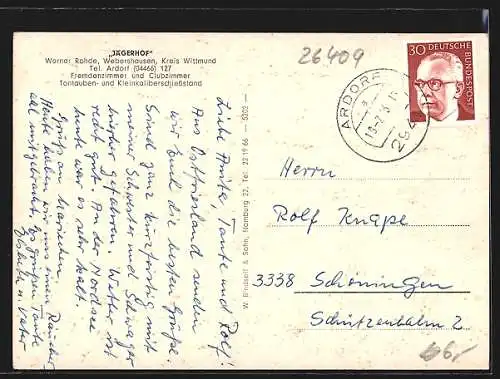 26409
"JÄGERHOF"
Werner Rohde, Webershausen, Kreis Wittmund
Tel. Ardorf (04466) 127
Fremdenzimmer und Clubzimmer
Tontauben- und Kleinkaliberschießstand
Liebe Tante und Rolf!
Aus Ostfriesland senden
wir Euch die besten Grüße.
Sind ganz kurzfristig mit
meiner Schwester und Schwager
hierher gefahren. Wetter ist
recht gut. An der Nordsee
war es sehr kalt.
Heute haben wir uns einen
mitgebracht. Es grüßen Tante
u. Vater
Gruß an
W. Bindseil & Sohn, Hamburg 52, Tel. 22 19 66 — 5202 —
ARDORF
294
30 DEUTSCHE
BUNDESPOST
Herrn
Rolf Knape
3338 Schöningen
2